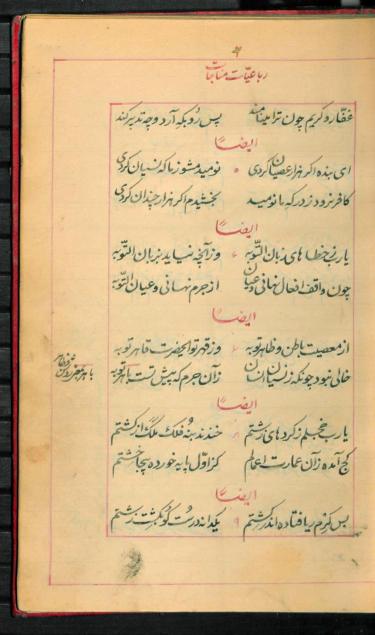 ۴
رباعیات مناجات
غفار و کریم چون ترا مینامند پس رو بکه آرد و چه تدبیر کند
ایضاً
ای بنده اگر هزار عصیان کردی نومید مشو ز ما که نسیان کردی
کافر نرود ز درگه ما نومید بخشیدم اگر هزار چندان کردی
ایضاً
یا رب ز خطا های زبان التوبه وز آنچه نیاید بزبان التوبه
چون واقف افعال نهانی و عیان از جرم نهانی و عیان التوبه
ایضاً
از معصیت باطن و ظاهر توبه وز قهر تو ای حضرت قاهر توبه
خالی نبود چونکه ز نسیان انسان زان جرم که پیش تست باهر توبه
ایضاً
یا رب خجلم ز کرد های زشتم خندند بنه فلک ملک از کشتم
کج آمده زان عمارت اعمالم کز اول پایه خورده پیچا خشتم
ایضاً
بس کرم ریا فتاده اندر کشتم یکدانه درست کو بگشت زشتم